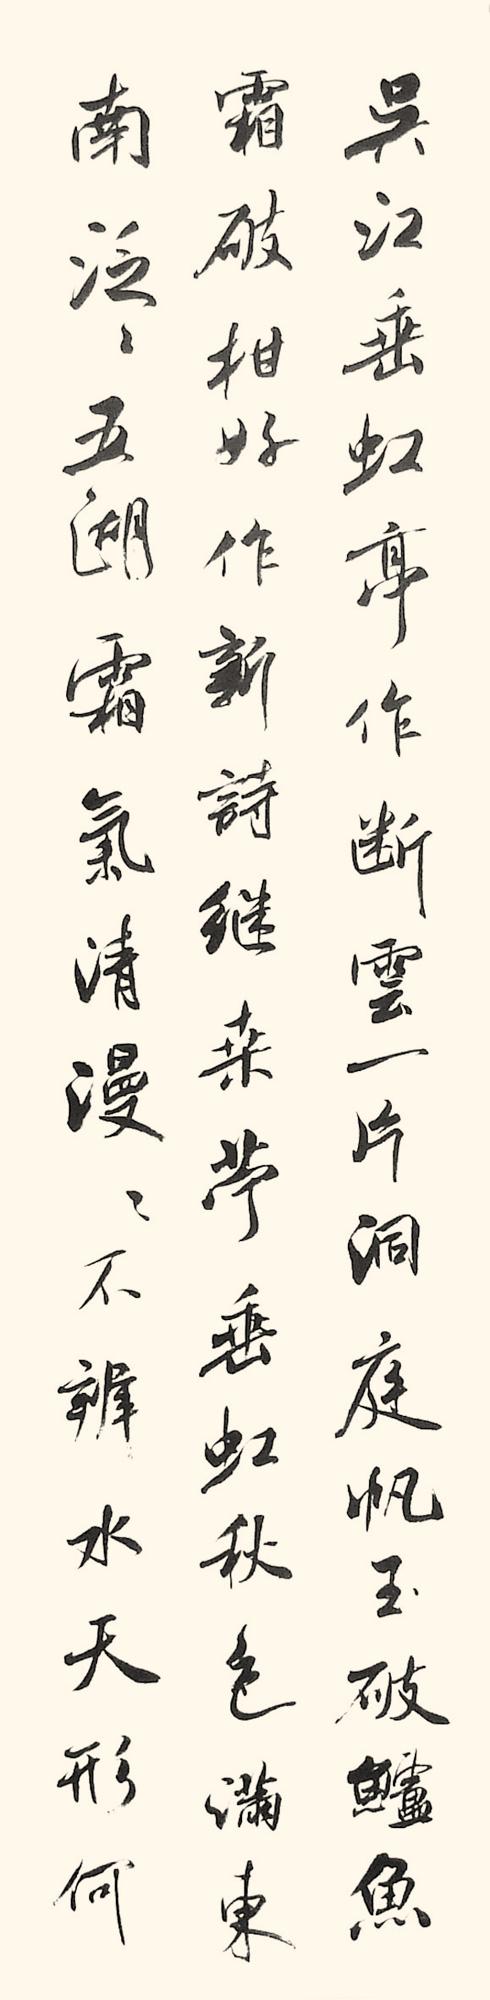 吳江垂虹亭作断雲一片洞庭帆玉破鱸魚
霜破柑好作新詩继桒苧垂虹秋色滿東
南泛〻五湖霜氣清漫〻不辨水天形何